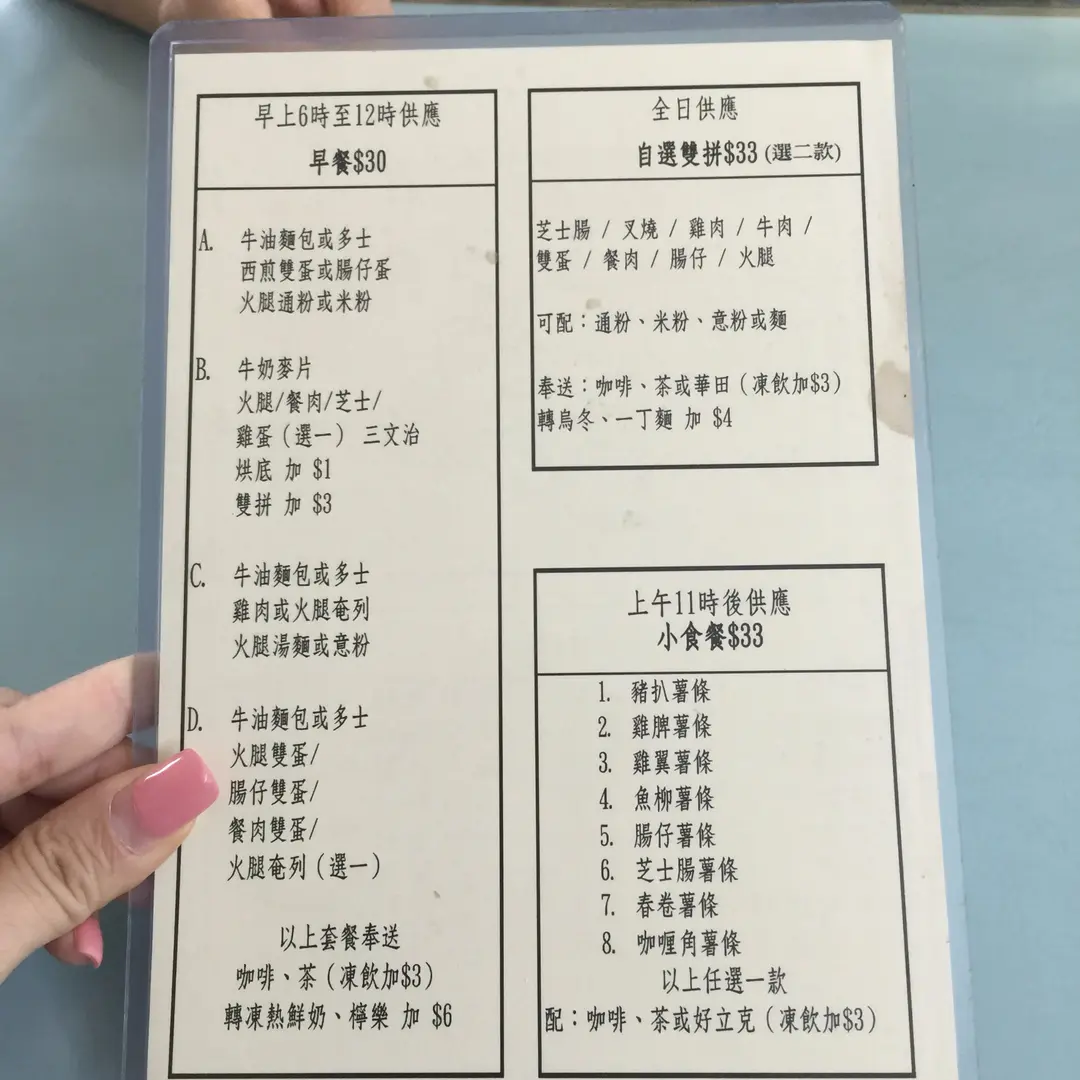 早上6時至12時供應
早餐$30
A. 牛油麵包或多士
西煎雙蛋或腸仔蛋
火腿通粉或米粉
B. 牛奶麥片
火腿/餐肉/芝士/
雞蛋（選一） 三文治
烘底 加 $1
雙拼 加 $3
C. 牛油麵包或多士
雞肉或火腿奄列
火腿湯麵或意粉
D. 牛油麵包或多士
火腿雙蛋/
腸仔雙蛋/
餐肉雙蛋/
火腿奄列（選一）
以上套餐奉送
咖啡、茶（凍飲加$3）
轉凍熱鮮奶、檸樂 加 $6
全日供應
自選雙拼$33 (選二款)
芝士腸 / 叉燒 / 雞肉 / 牛肉 /
雙蛋 / 餐肉 / 腸仔 / 火腿
可配：通粉、米粉、意粉或麵
奉送：咖啡、茶或華田（凍飲加$3）
轉烏冬、一丁麵 加 $4
上午11時後供應
小食餐$33
1. 豬扒薯條
2. 雞脾薯條
3. 雞翼薯條
4. 魚柳薯條
5. 腸仔薯條
6. 芝士腸薯條
7. 春卷薯條
8. 咖喱角薯條
以上任選一款
配：咖啡、茶或好立克（凍飲加$3）